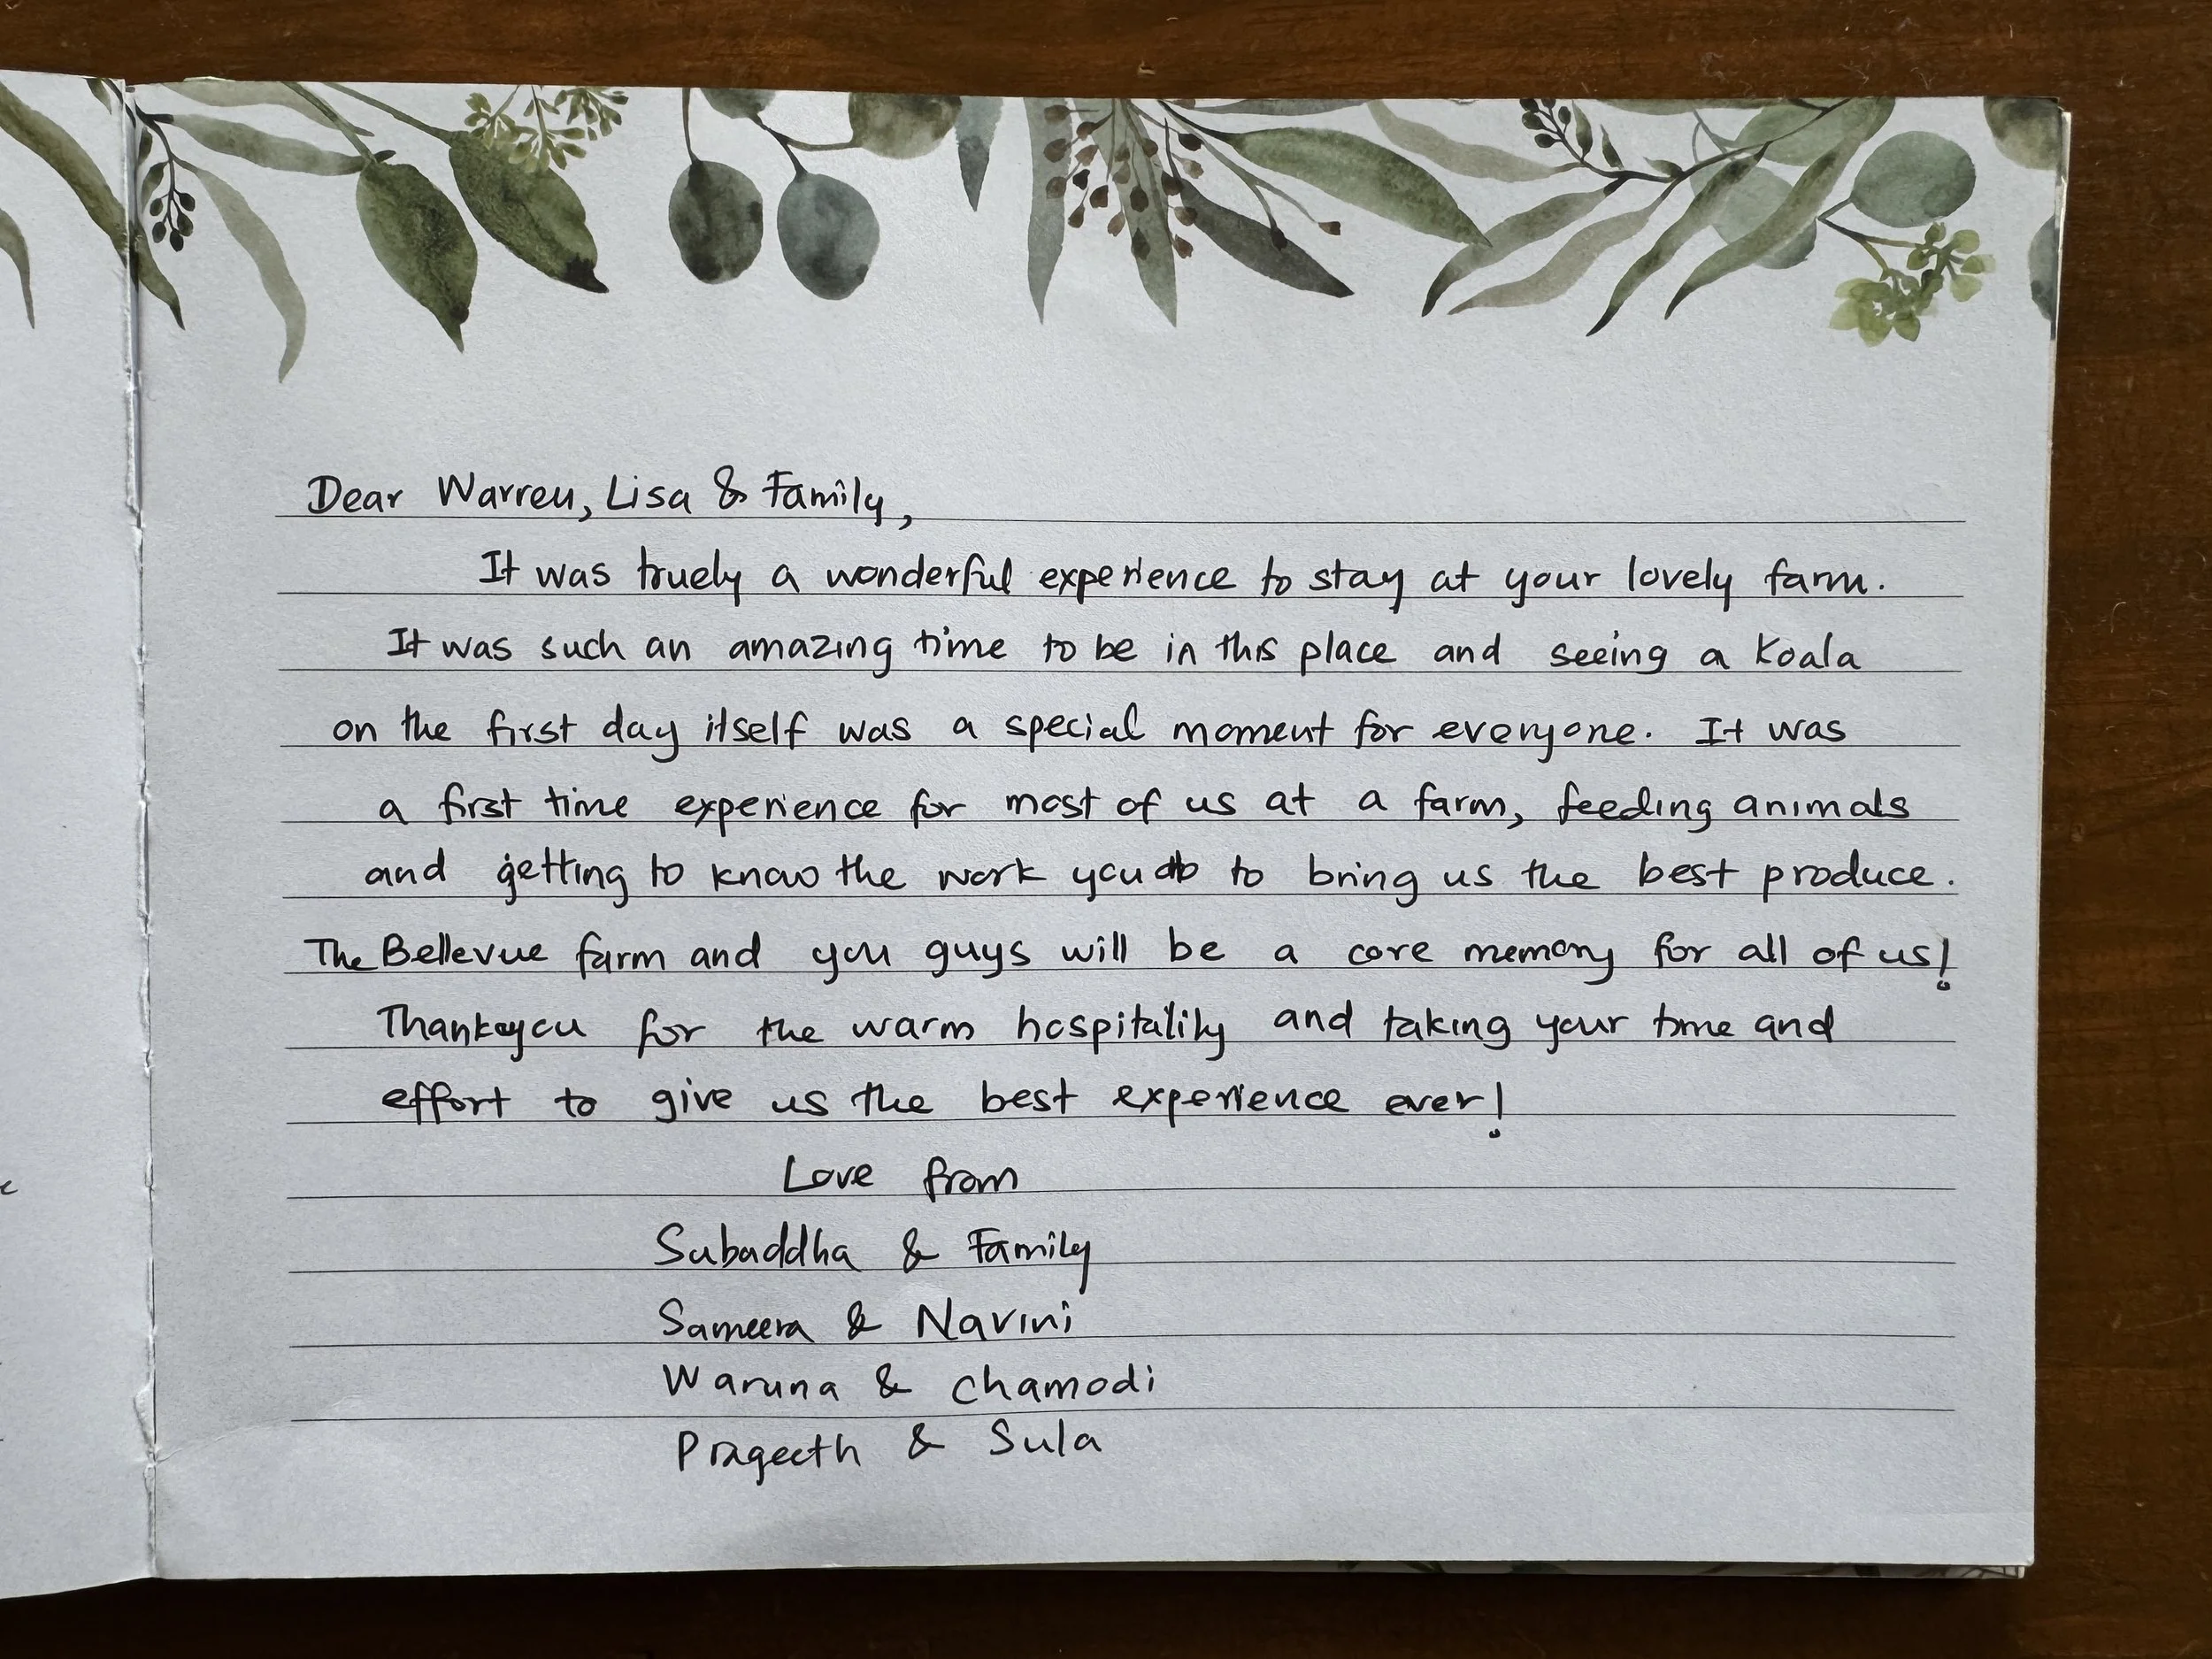 Dear Warren, Lisa & Family,
It was truely a wonderful experience to stay at your lovely farm.
It was such an amazing time to be in this place and seeing a Koala
on the first day itself was a special moment for everyone. It was
a first time experience for most of us at a farm, feeding animals
and getting to know the work you do to bring us the best produce.
The Bellevue farm and you guys will be a core memory for all of us!
Thankyou for the warm hospitality and taking your time and
effort to give us the best experience ever!
Love from
Subaddha & Family
Sameera & Navini
Waruna & Chamodi
Prageeth & Sula